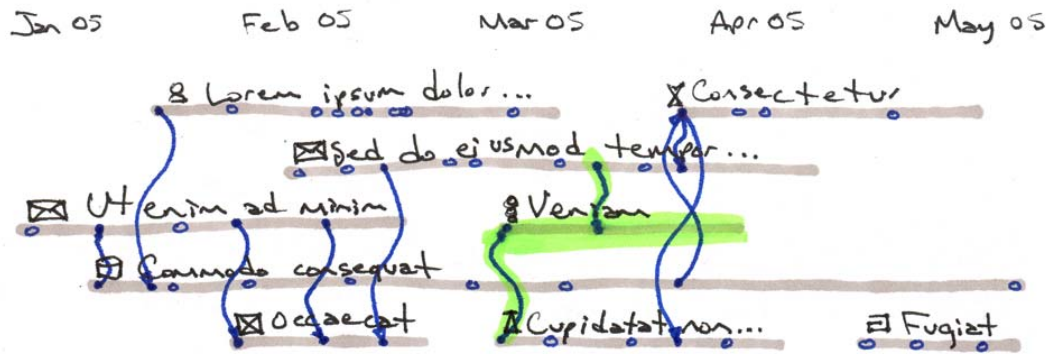 Jan 05 Feb 05 Mar 05 Apr 05 May 05
Lorem ipsum dolor... Consectetur
Sed do eiusmod tempor...
Ut enim ad minim Veniam
Commodo consequat
Occaecat Cupidatat non... Fugiat